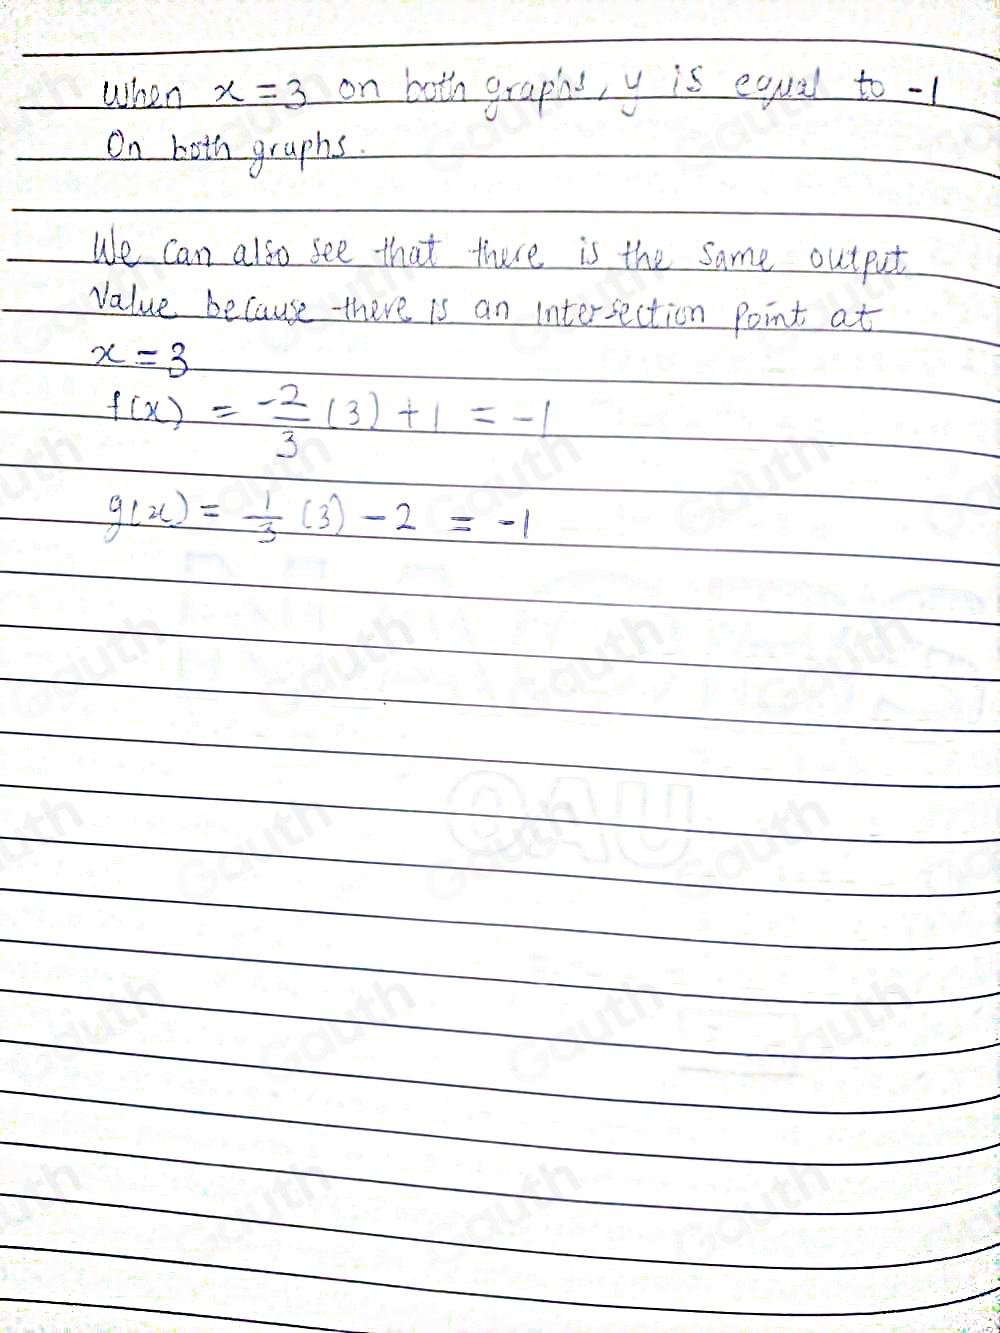 When x = 3 on both graphs, y is equal to -1
On both graphs.
We can also see that there is the same output
Value because there is an intersection point at
x = 3
f(x) = -2/3 (3) + 1 = -1
g(x) = 1/3 (3) - 2 = -1
QAU
Gauth